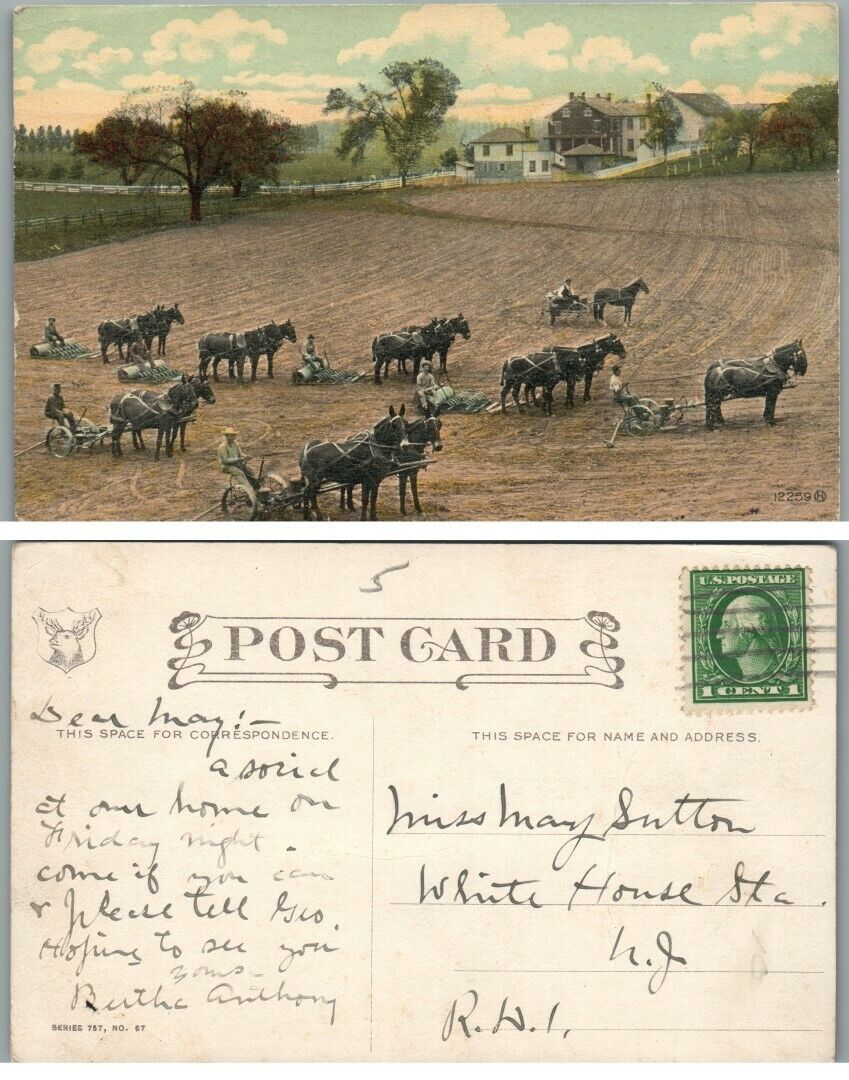 12259 H
POST CARD
U.S. POSTAGE
1 CENT 1
THIS SPACE FOR CORRESPONDENCE.
Dear May:—
a social
at our home on
Friday night.
come if you can
& please tell Geo.
Hoping to see you
yours—
Bertha Anthony
SERIES 757, NO. 67
THIS SPACE FOR NAME AND ADDRESS.
Miss May Sutton
White House Sta.
N.J.
R.D.1.
5